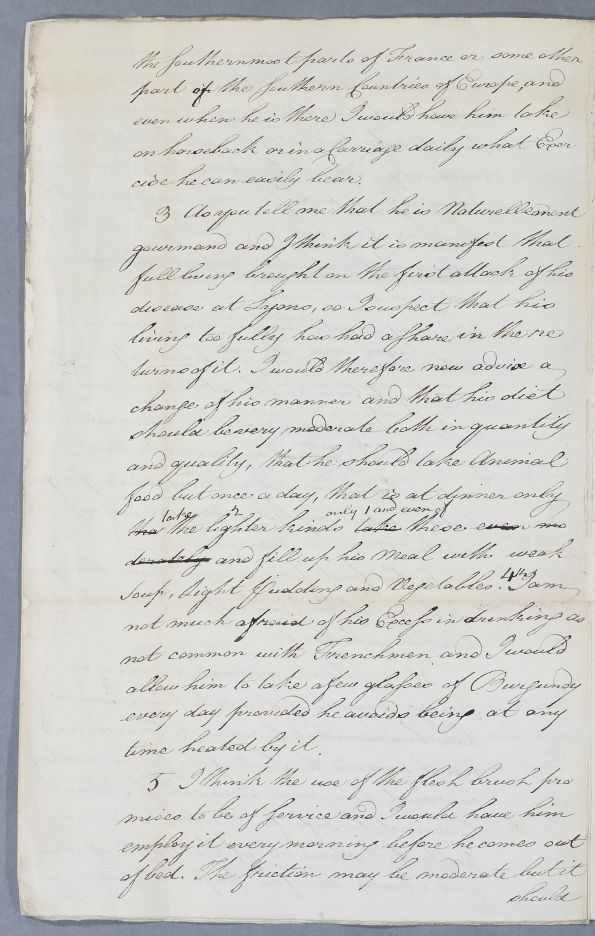 the Southernmost parts of France or some other
part of the Southern Countries of Europe, and
even when he is there I would have him take
on horseback or in a Carriage daily what Exer
cise he can easily bear.
3 As you tell me that he is Naturellement
gourmand and I think it is manifest that
full living brought on the first attack of his
disease at Lyons, so I suspect that his
living too fully has had a share in the re
turns of it. I would therefore now advise a
change of his manner and that his diet
should be very moderate both in quantity
and quality, that he should take Animal
food but once a day, that is at dinner only
take 2 only 1 and even of
tha the lighter kinds take these even mo
derately and fill up his Meal with weak
Soup, light Pudding and Vegetables. 4th I am
not much afraid of his Excess in drinking as
not common with Frenchmen and I would
allow him to take a few glasses of Burgundy
every day provided he avoids being at any
time heated by it.
5 I think the use of the flesh brush pro
mises to be of Service and I would have him
employ it every morning before he comes out
of bed. The friction may be moderate but it
should